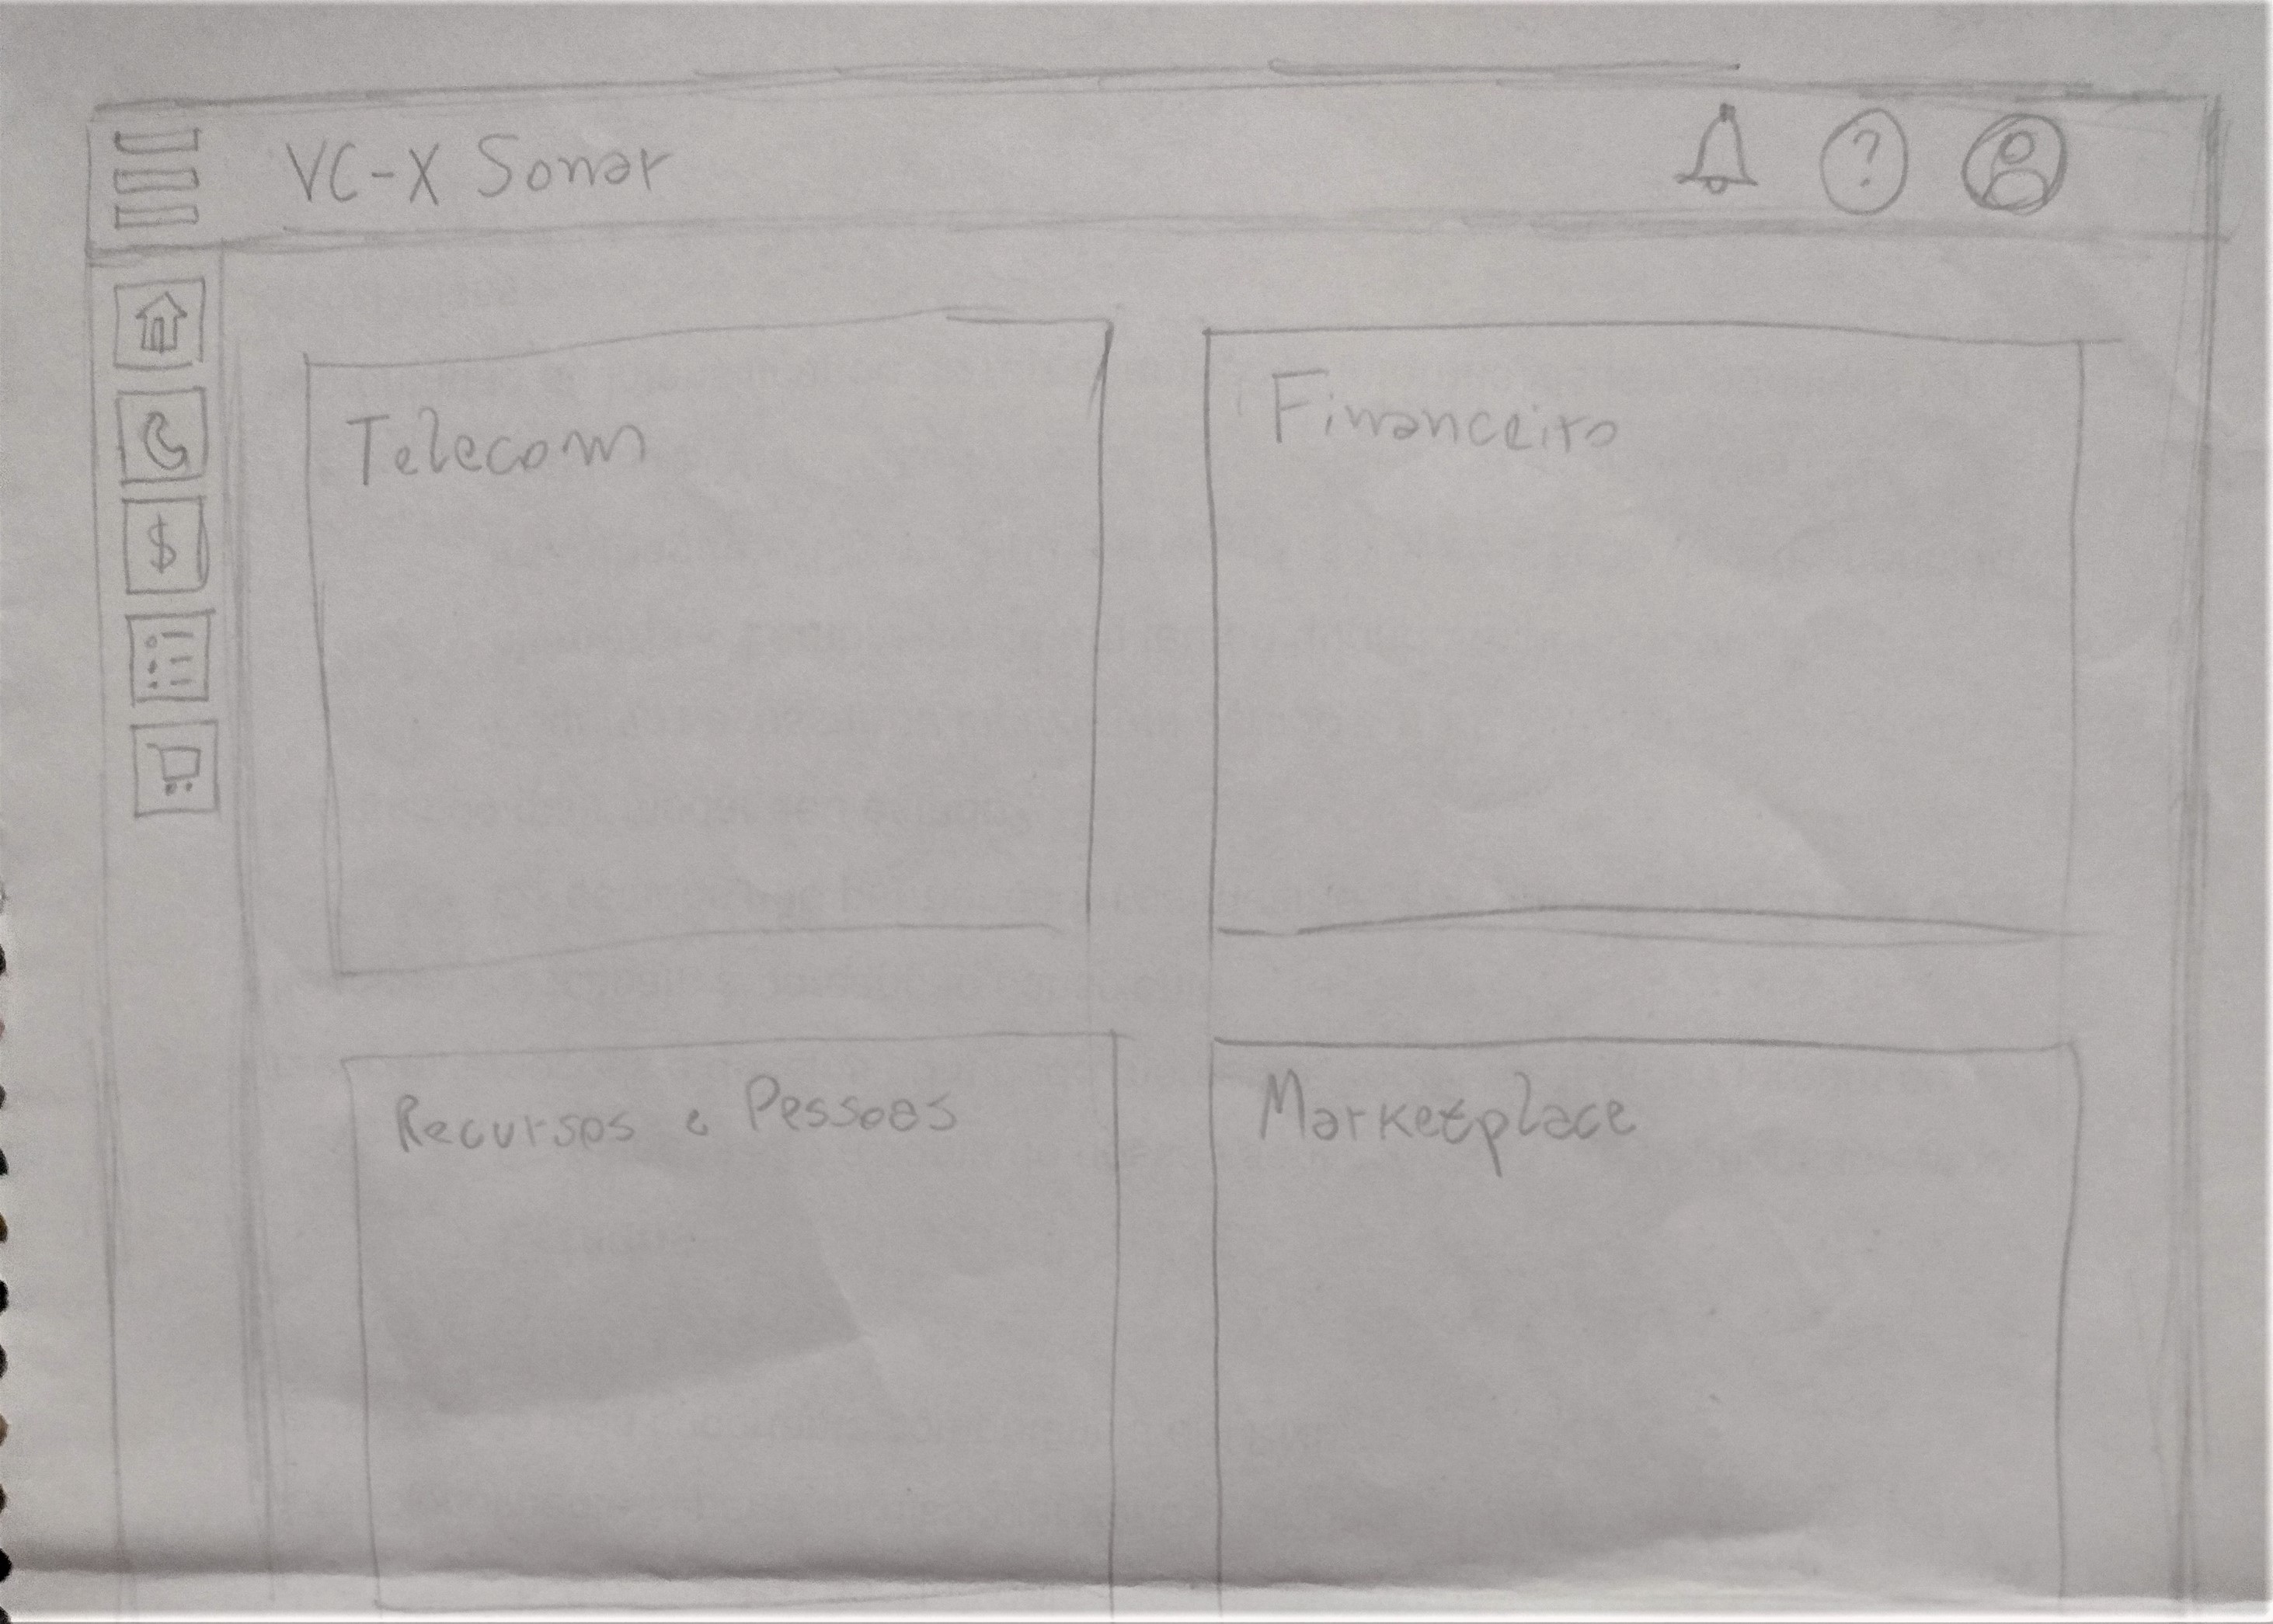 VC-X Sonar
?
Telecom
Financeiro
$
Recursos e Pessoas
Marketplace